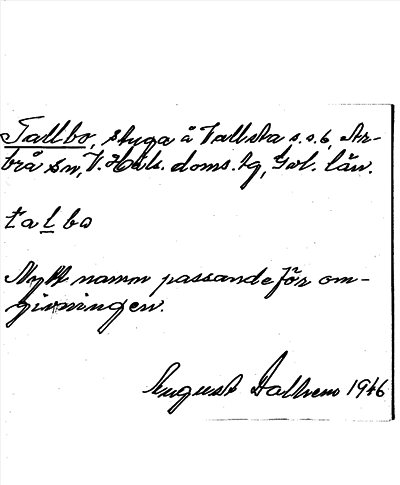 Tallbo, stuga å Vallsta s.s.6, Ar-
brå sn, V. Häls. doms.tg, Gvl. län.
talbo
Nytt namn passande för om-
givningen.
August Dalhem 1946